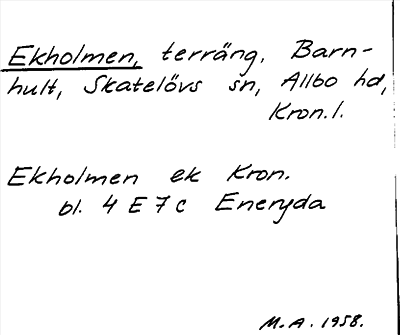 Ekholmen, terräng, Barn-
hult, Skatelövs sn, Allbo hd,
Kron.l.
Ekholmen ek Kron.
bl. 4 E 7 c Eneryda
M.A. 1958.